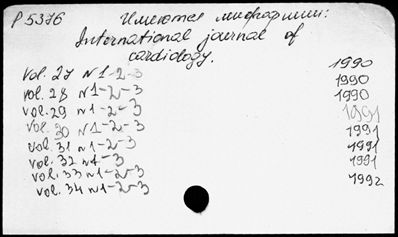 P 5376 Имеются микрофиши:
International journal of
cardiology.
vol. 27 N 1-2-3 1990
vol. 28 N 1-2-3 1990
vol. 29 N 1-2-3 1990
vol. 30 N 1-2-3 1991
vol. 31 N 1-2-3 1991
vol. 32 N 1-3 1991
vol. 33 N 1-2-3 1991
vol. 34 N 1-2-3 1992